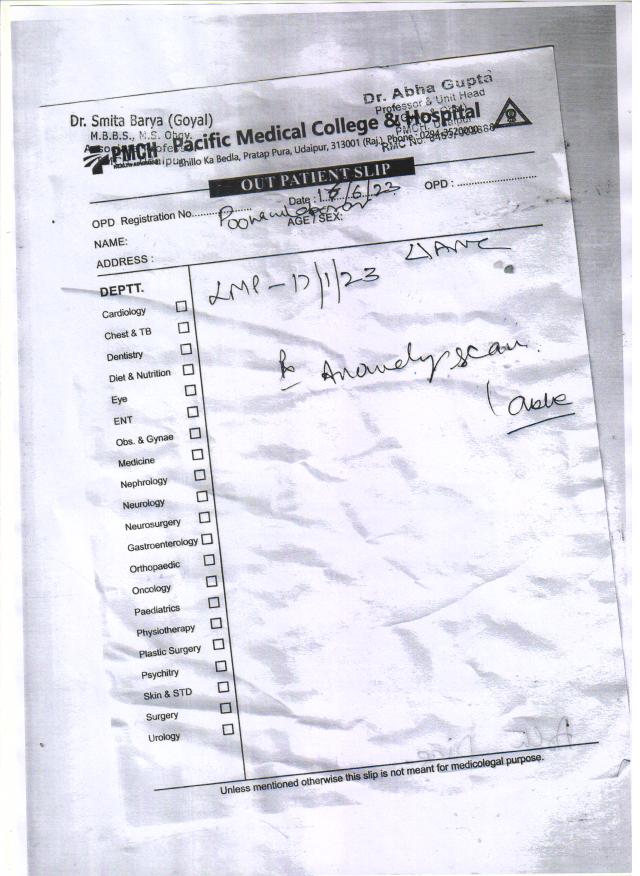 Dr. Smita Barya (Goyal)
M.B.B.S., M.S. Obgy.
Dr. Abha Gupta
Professor & Unit Head
PMCH
Pacific Medical College & Hospital
Bhillo Ka Bedla, Pratap Pura, Udaipur, 313001 (Raj.) Phone: 0294-3520000
OUT PATIENT SLIP
OPD Registration No. Date : /6/23 OPD :
NAME: AGE / SEX:
ADDRESS :
DEPTT.
LMP - 17/1/23
Cardiology
Chest & TB
Dentistry
Diet & Nutrition
Eye
ENT
Obs. & Gynae
Medicine
Nephrology
Neurology
Neurosurgery
Gastroenterology
Orthopaedic
Oncology
Paediatrics
Physiotherapy
Plastic Surgery
Psychitry
Skin & STD
Surgery
Urology
ANC
Anomaly scan
Unless mentioned otherwise this slip is not meant for medicolegal purpose.